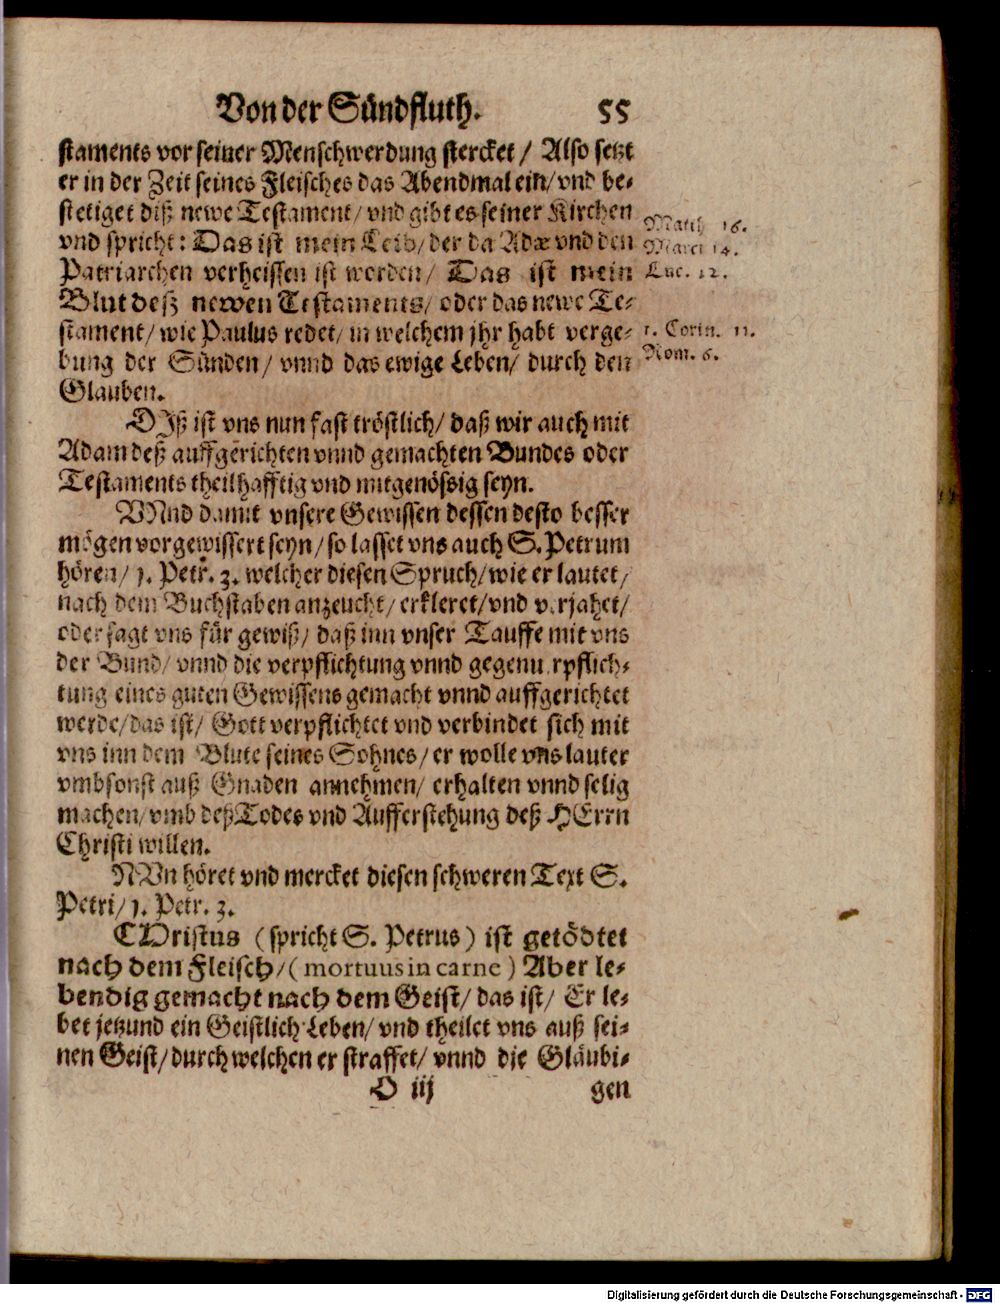 Von der Sündfluth. 55
staments vor seiner Menschwerdung stercket / Also setzt
er in der Zeit seines Fleisches das Abendmal ein / vnd be-
stetiget diß newe Testament / vnd gibt es seiner Kirchen
vnd spricht: Das ist mein Leib / der da Adæ vnd den
Patriarchen verheissen ist worden / Das ist mein
Blut deß newen Testaments / oder das newe Te-
stament / wie Paulus redet / in welchem jhr habt verge-
bung der Sünden / vnnd das ewige Leben / durch den
Glauben.
Matth. 26.
Marci 14.
Luc. 22.
1. Corin. 11.
Rom. 6.
DIß ist vns nun fast tröstlich / daß wir auch mit
Adam deß auffgerichten vnnd gemachten Bundes oder
Testaments theilhafftig vnd mitgenössig seyn.
VNnd damit vnsere Gewissen dessen desto besser
mögen vorgewissert seyn / so lasset vns auch S. Petrum
hören / 1. Petr. 3. welcher diesen Spruch / wie er lautet /
nach dem Buchstaben anzeucht / erkleret / vnd verjahet /
oder sagt vns für gewiß / daß inn vnser Tauffe mit vns
der Bund / vnnd die verpflichtung vnnd gegenverpflich-
tung eines guten Gewissens gemacht vnnd auffgerichtet
werde / das ist / Gott verpflichtet vnd verbindet sich mit
vns inn dem Blute seines Sohnes / er wolle vns lauter
vmbsonst auß Gnaden annehmen / erhalten vnnd selig
machen / vmb deß Todes vnd Aufferstehung deß HErrn
Christi willen.
NVn höret vnd mercket diesen schweren Text S.
Petri / 1. Petr. 3.
CHristus (spricht S. Petrus) ist getödtet
nach dem Fleisch / (mortuus in carne) Aber le-
bendig gemacht nach dem Geist / das ist / Er le-
bet jetzund ein Geistlich Leben / vnd theilet vns auß sei-
nen Geist / durch welchen er straffet / vnnd die Gläubi-
O iij gen
Digitalisierung gefördert durch die Deutsche Forschungsgemeinschaft - DFG